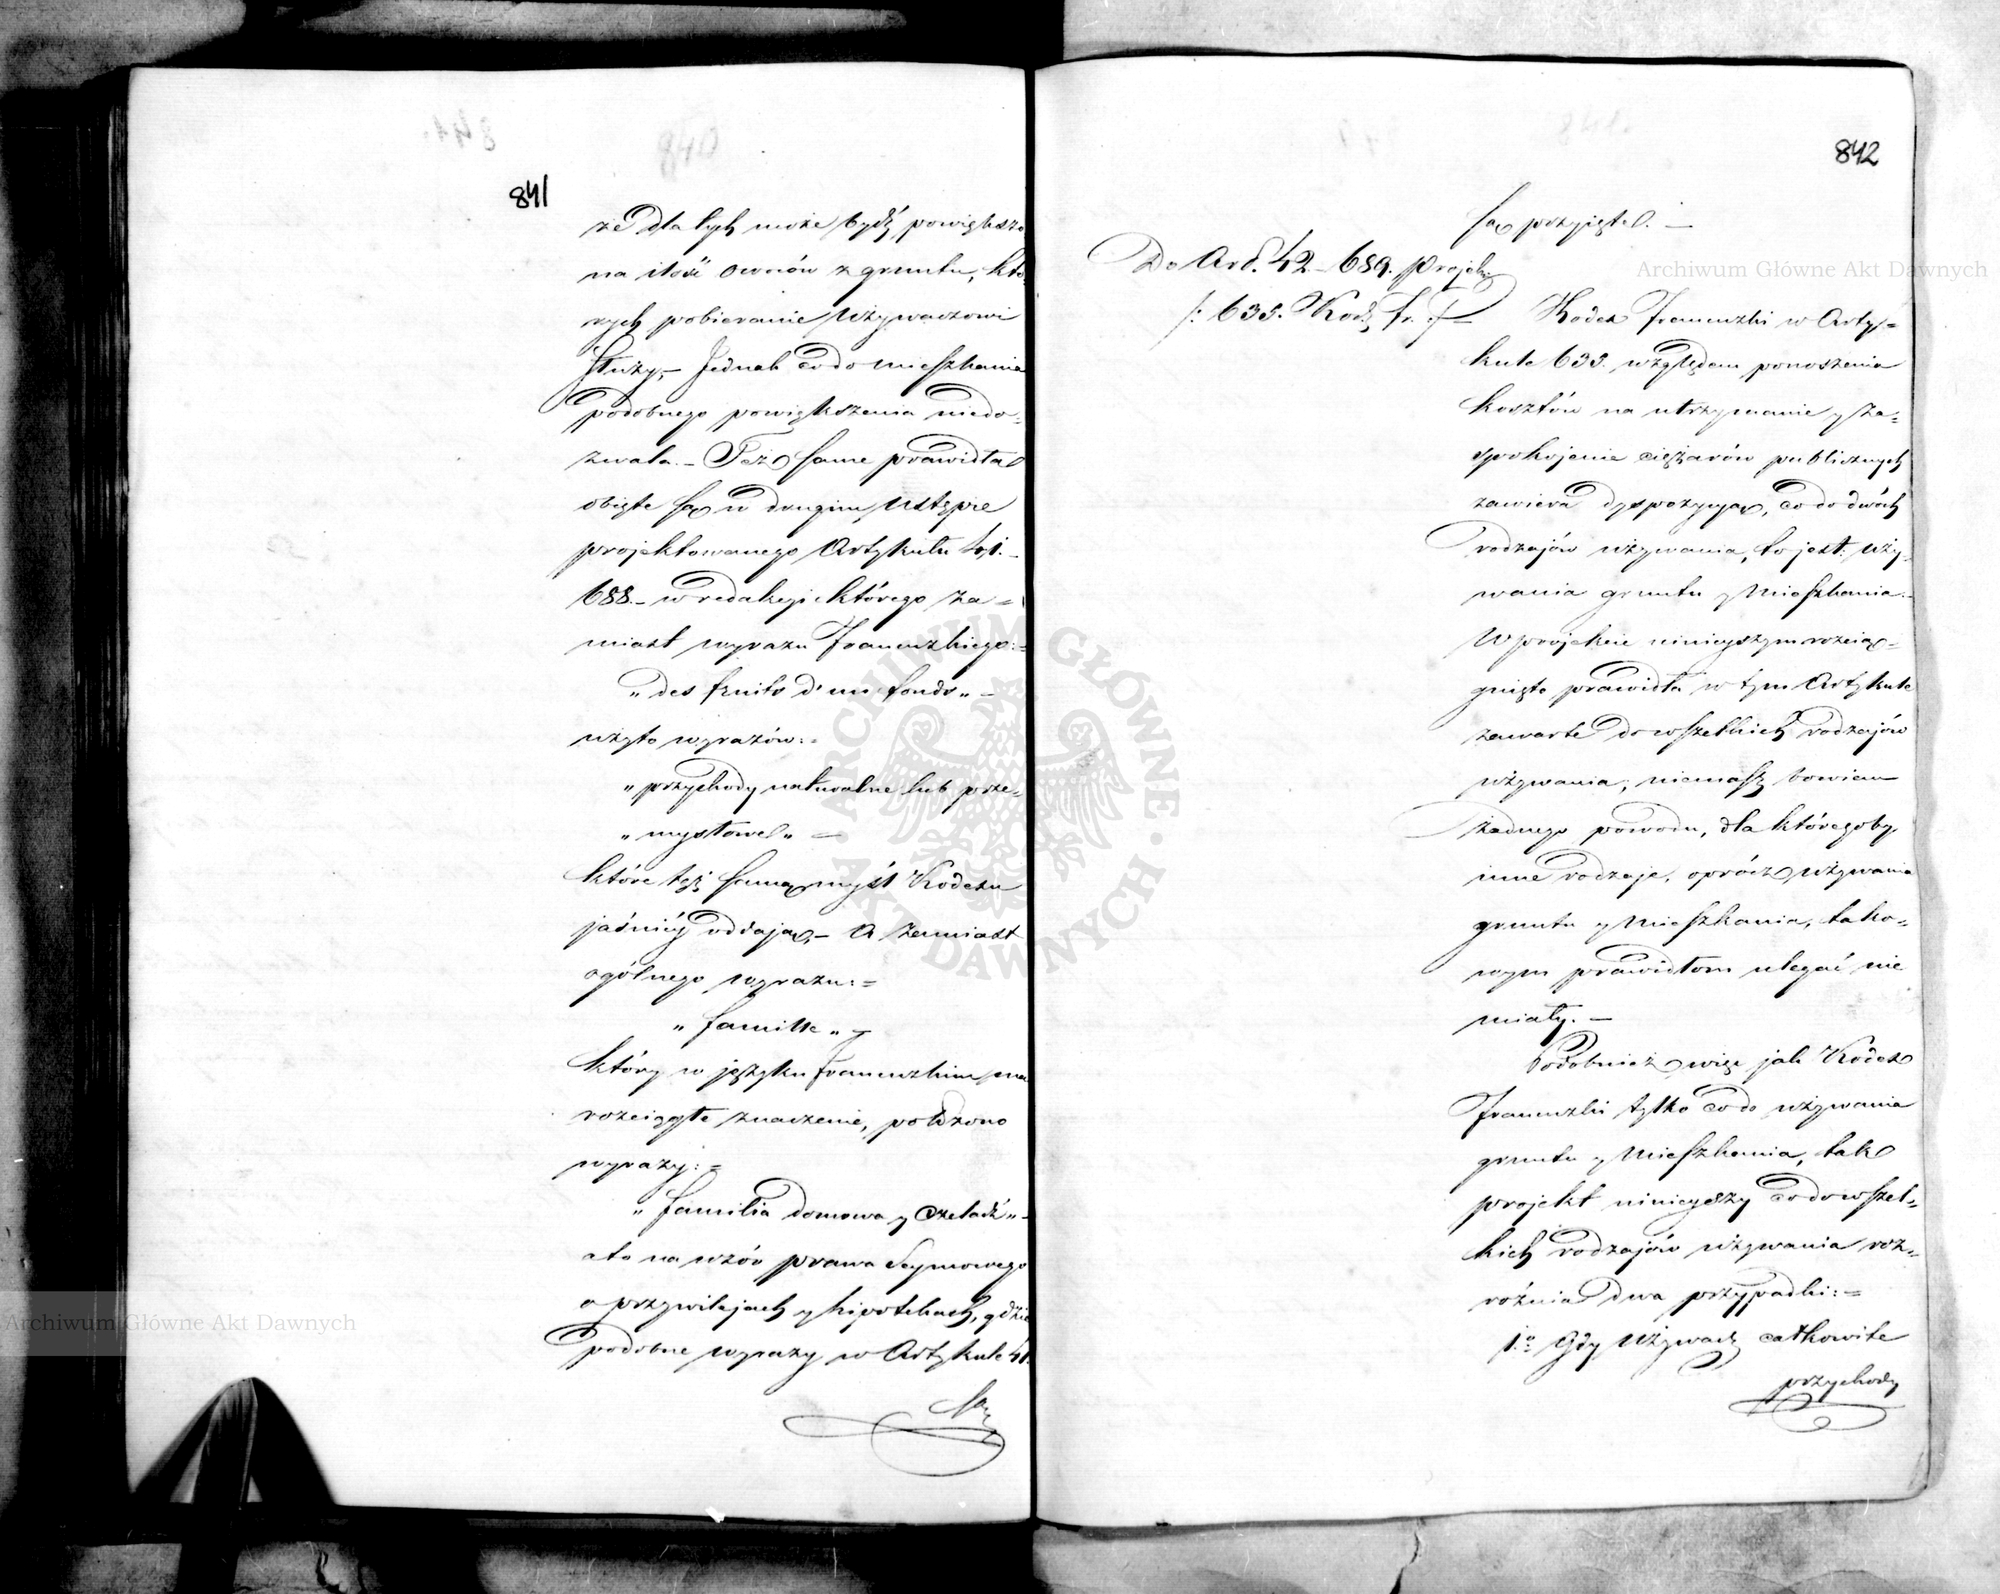 841
że dla tych może bydź powiększo
na ilość owoców z gruntu, któ
rych pobieranie Używaczowi
służy,- Jednak co do mieszkania
podobnego powiększenia niedo-
zwala.- Też same prawidła
obięte są w drugim Ustępie
projektowanego Artykułu 41.-
688.- w redakcyi którego za=
miast wyrazu Francuzkiego:=
„des fruits d'un fonds„ -
użyto wyrazów:=
„przychody naturalne lub prze-
„mysłowe„ -
które tęż samą myśl Kodexu
jaśniéy oddają,- A zamiast
ogólnego wyrazu:=
„famille„ -
który w języku francuzkim ma
rozciągłe znaczenie, położono
wyrazy:=
„familia domowa y Czeladź„-
a to na wzór prawa Seymowego
o przywilejach y hipotekach, gdzie
podobne wyrazy w Artykule 41.
są
842
są przyięte. -
Do Art. 42-689. Projektu
/: 635. Kod. fr. :/
Kodex Francuzki w Arty=
kule 635. względem ponoszenia
kosztów na utrzymanie y za=
spokojenie ciężarów publicznych
zawiera dyspozycyą, co do dwóch
rodzajów używania, to jest: uży-
wania gruntu y Mieszkania.-
W projekcie ninieyszym rozcią=
gnięto prawidła w tym Artykule
zawarte do wszelkich rodzajów
używania; niemasz bowiem
żadnego powodu, dla któregoby
inne rodzaje, oprócz używania
gruntu y Mieszkania, tako=
wym prawidłom ulegać nie
miały. -
Podobnież więc jak Kodex
Francuzki tylko co do używania
gruntu y Mieszkania, tak
projekt ninieyszy co do wszel=
kich rodzajów używania roz=
różnia dwa przypadki:=
1.o Gdy Używacz całkowite
przychody
ARCHIWUM GŁÓWNE AKT DAWNYCH
Archiwum Główne Akt Dawnych
Archiwum Główne Akt Dawnych